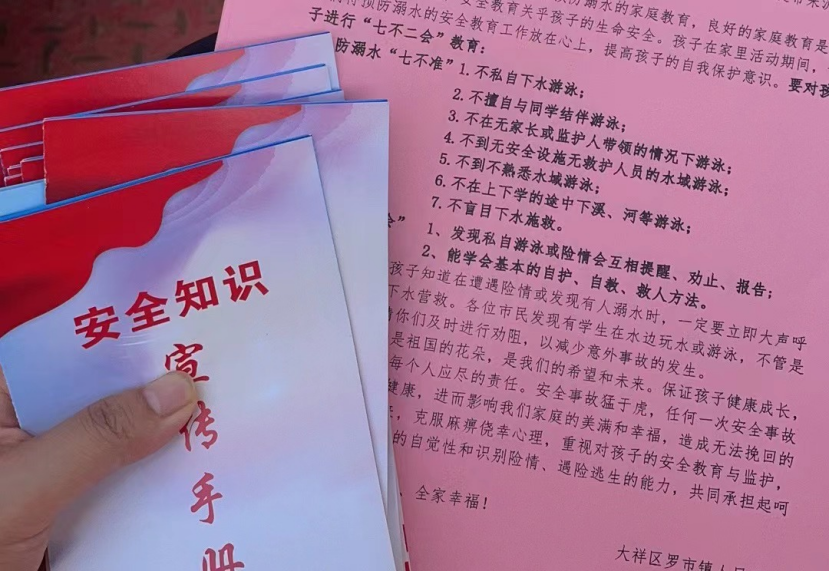 安全知识
宣传手册
预防溺水的家庭教育,良好的家庭教育是
安全教育关乎孩子的生命安全。孩子在家里活动期间,
防溺水的安全教育工作放在心上,提高孩子的自我保护意识。要对孩
子进行“七不二会”教育:
防溺水“七不准”
1.不私自下水游泳;
2.不擅自与同学结伴游泳;
3.不在无家长或监护人带领的情况下游泳;
4.不到无安全设施无救护人员的水域游泳;
5.不到不熟悉水域游泳;
6.不在上下学的途中下溪、河等游泳;
7.不盲目下水施救。
会”
1、发现私自游泳或险情会互相提醒、劝止、报告;
2、能学会基本的自护、自救、救人方法。
孩子知道在遭遇险情或发现有人溺水时,一定要立即大声呼
下水营救。各位市民发现有学生在水边玩水或游泳,不管是
你们及时进行劝阻,以减少意外事故的发生。
是祖国的花朵,是我们的希望和未来。保证孩子健康成长,
每个人应尽的责任。安全事故猛于虎,任何一次安全事故
健康,进而影响我们家庭的美满和幸福,造成无法挽回的
,克服麻痹侥幸心理,重视对孩子的安全教育与监护,
的自觉性和识别险情、遇险逃生的能力,共同承担起呵
,全家幸福!
大祥区罗市镇人